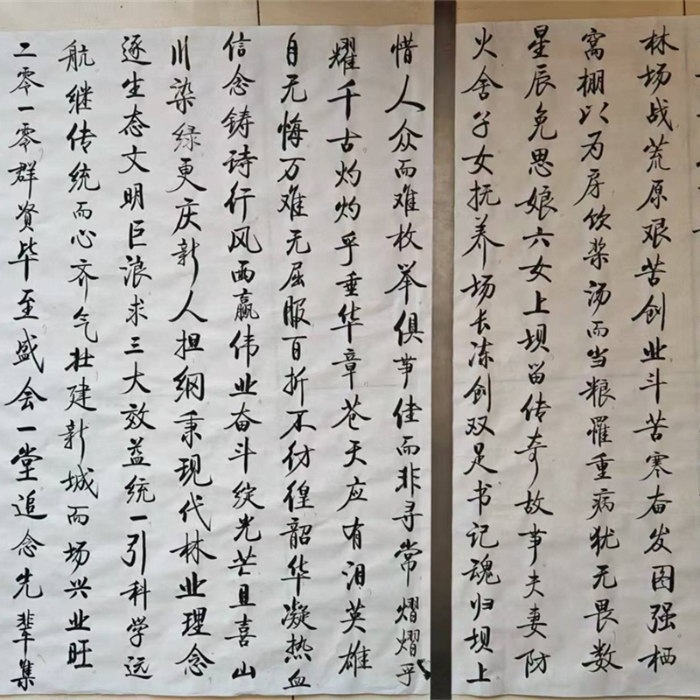 林场战荒原艰苦创业斗苦寒奋发图强栖
窝棚以为房饮浆汤而当粮罹重病犹无畏数
星辰免思娘六女上坝留传奇故事夫妻防
火舍子女抚养场长冻创双足书记魂归坝上
惜人众而难枚举俱事佳而非寻常熠熠乎
耀千古灼灼乎垂华章苍天应有泪英雄
自无悔万难无屈服百折不彷徨韶华凝热血
信念铸诗行风雨赢伟业奋斗绽光芒且喜山
川染绿更庆新人担纲秉现代林业理念
逐生态文明巨浪求三大效益统一引科学远
航继传统而心齐气壮建新城而场兴业旺
二零一零群資毕至盛会一堂追念先辈集